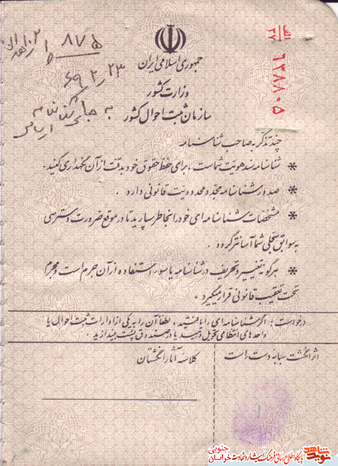 جمهوری اسلامی ایران
وزارت کشور
سازمان ثبت احوال کشور
۸۷۵
۶۹ ر ۲ ر ۲۳
به جای
۶۳۸۸۰۵
چند تذکر به صاحب شناسنامه
* شناسنامه سند هویت شماست، برای حفظ حقوق خود بدقت از آن نگهداری کنید.
* صدور شناسنامه مجدد محدودیت قانونی دارد.
* مشخصات شناسنامه ای خود را بخاطر بسپارید تا در موقع ضرورت دسترسی
به سوابق سجلی شما آسانتر گردد.
* هرگونه تغییر و تحریف در شناسنامه یا سوء استفاده از آن جرم است و مجرم
تحت تعقیب قانونی قرار میگیرد.
درخواست: اگر شناسنامه ای را یافتید، لطفا آن را به یکی از ادارات ثبت احوال یا
واحدهای انتظامی تحویل دهید یا در صندوق پست بیندازید.
اثر انگشت سبابه دست است
کلاسه آثار انگشتان